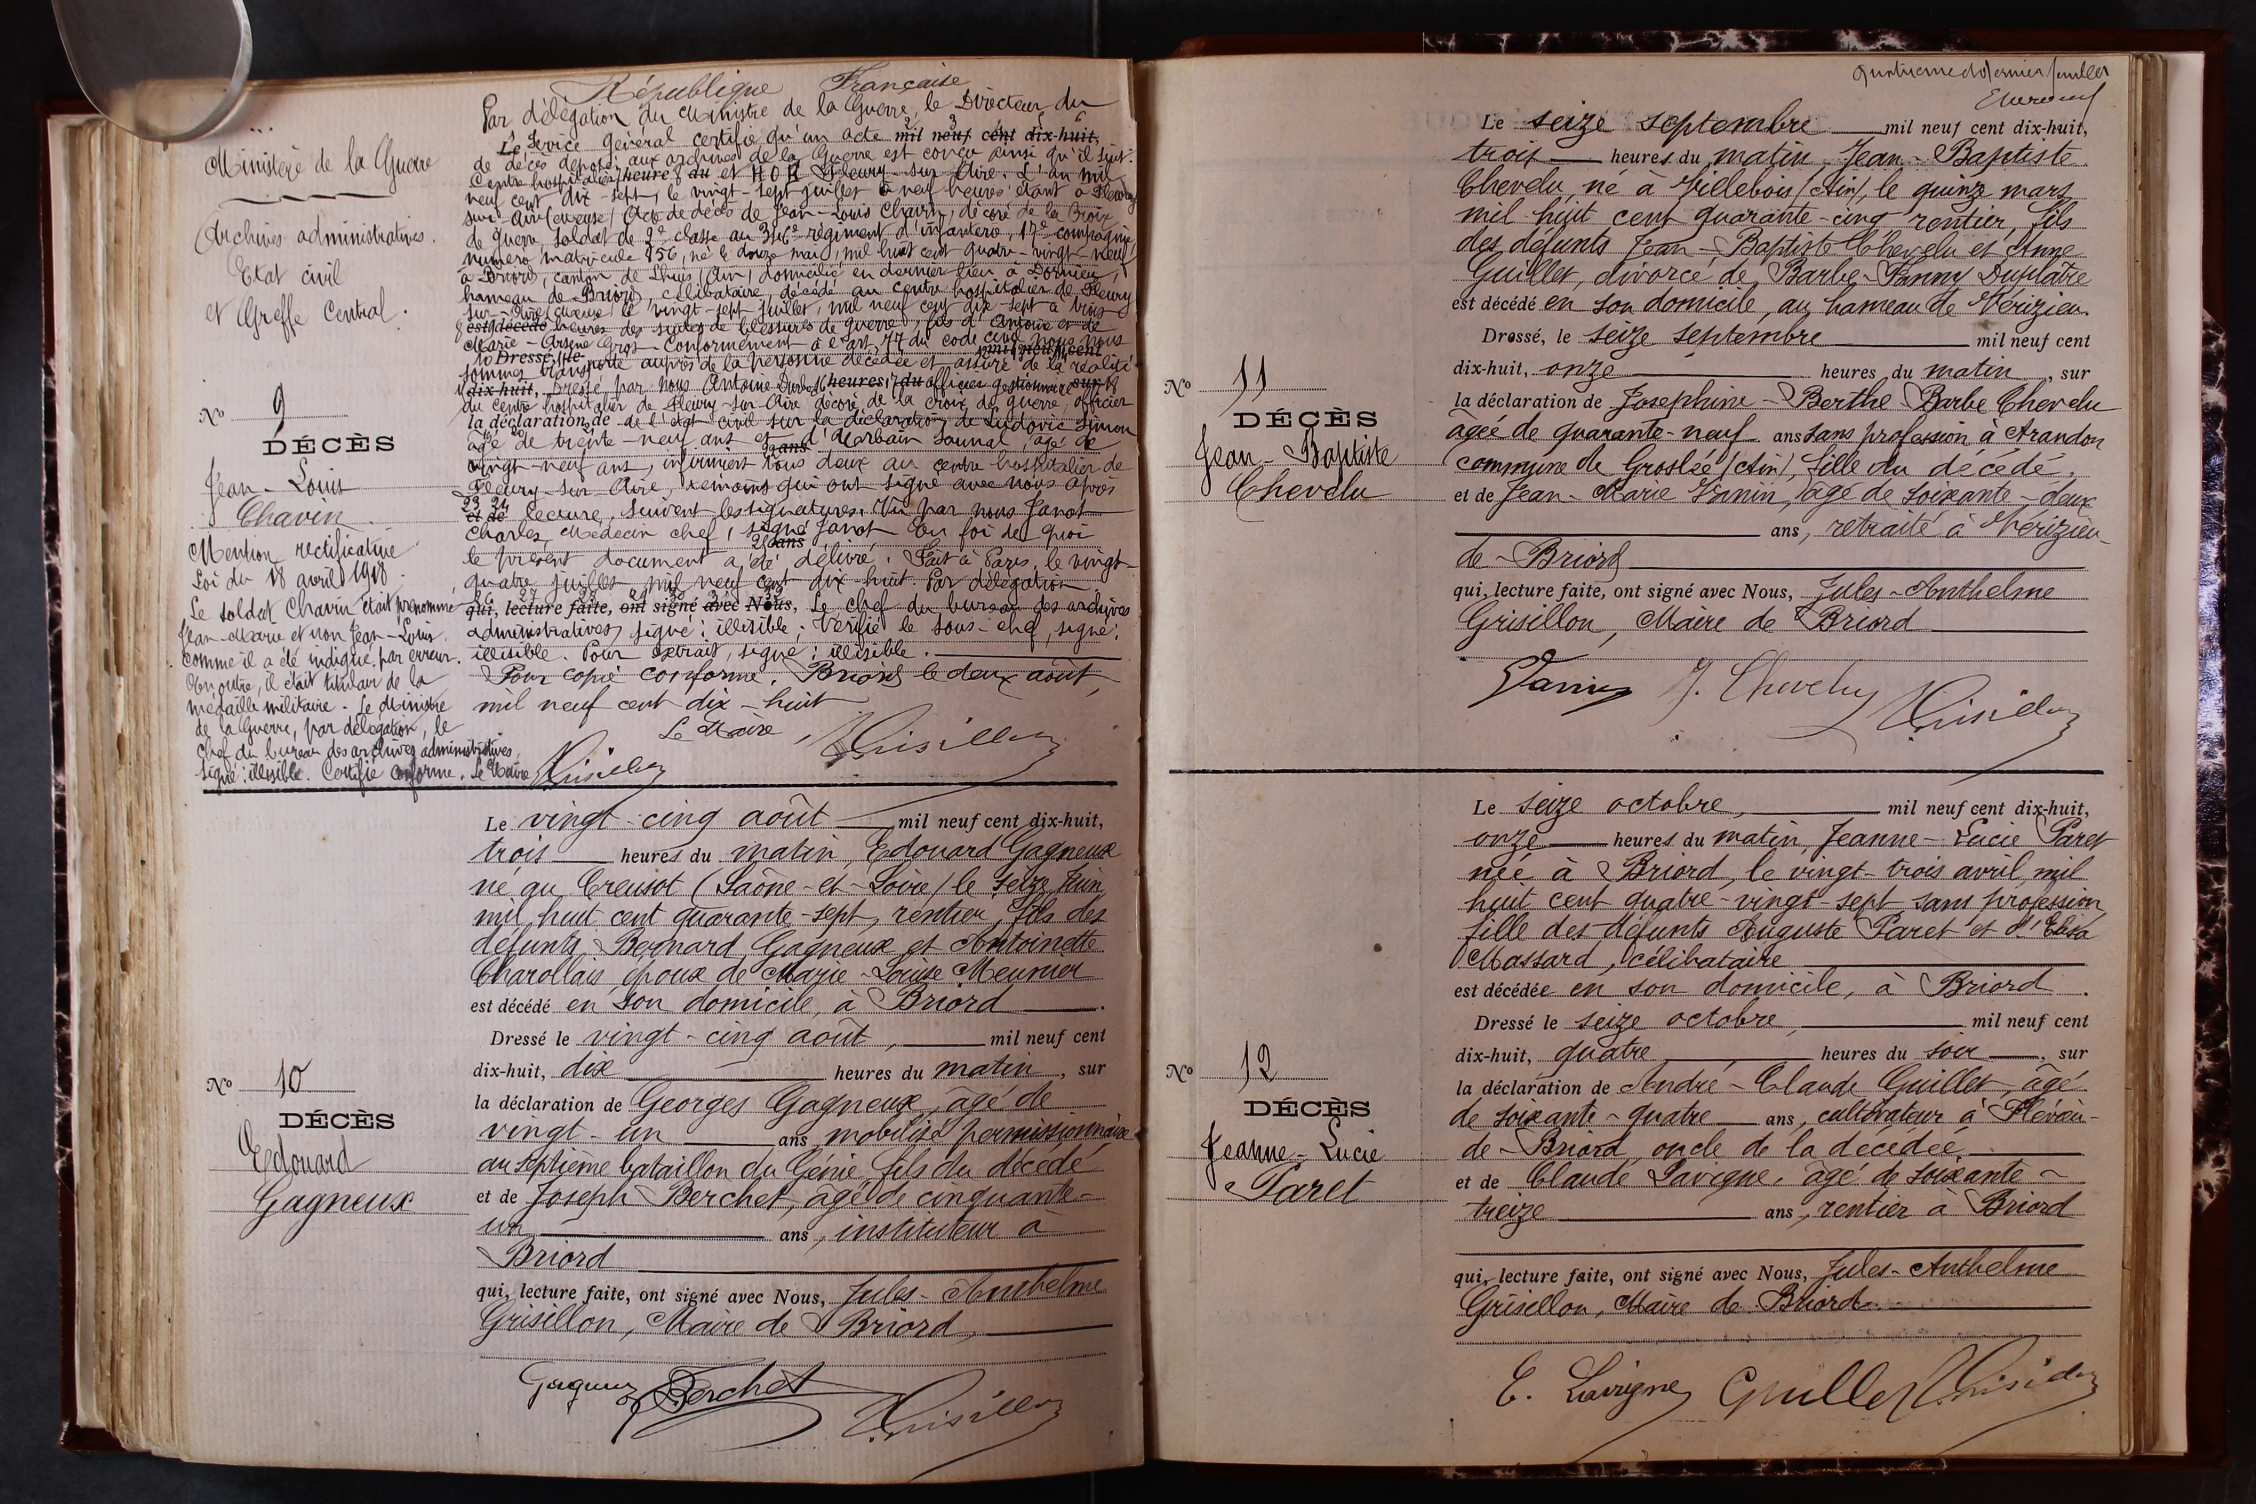 République Française
Par délégation du Ministre de la Guerre, le Directeur du
Le Service général certifie qu'un acte mil neuf cent dix-huit,
de décès déposé aux archives de la Guerre est conçu ainsi qu'il suit:
Centre hospitalier heures du et H.O.E. Fleury-sur-Aire. L'an mil
neuf cent dix-sept, le vingt-sept juillet à neuf heures étant à Fleury
sur-Aire (Meuse) Acte de décès de Jean-Louis Chavin, décoré de la Croix
de guerre, soldat de 2e classe au 346e régiment d'infanterie, 17e compagnie,
numéro matricule 856, né le douze mai, mil huit cent quatre-vingt-neuf
à Briord, canton de Lhuis (Ain) domicilié en dernier lieu à Dornieu,
hameau de Briord, célibataire, décédé au centre hospitalier de Fleury
sur-Aire (Meuse) le vingt-sept juillet, mil neuf cent dix-sept à trois
est décédé heures des suites de blessures de guerre, fils d'Antoine et de
Marie-Arsène Gros. Conformément à l'art. 77 du code civil nous nous
Dressé, le mil neuf cent
sommes transporté auprès de la personne décédée et assuré de la réalité
dix-huit, Dressé par nous Antoine heures du officier gestionnaire sur
du centre hospitalier de Fleury-sur-Aire décoré de la croix de guerre, officier
la déclaration de de l'état civil sur la déclaration de Ludovic Simon
âgé de trente-neuf ans et d'Urbain Saunal, âgé de
ans
vingt-neuf ans, infirmiers tous deux au centre hospitalier de
Fleury-sur-Aire, témoins qui ont signé avec nous après
et de lecture, suivent les signatures. Vu par nous Janot
Charles, Médecin chef, signé Janot. En foi de quoi
ans
le présent document a été délivré. Fait à Paris, le vingt-
quatre juillet mil neuf cent dix-huit. Par délégation
qui, lecture faite, ont signé avec Nous, Le chef du bureau des archives
administratives, signé: illisible; Vérifié le sous-chef, signé:
illisible. Pour extrait, signé: illisible.
Pour copie conforme. Briord le deux août,
mil neuf cent dix-huit
Le Maire,
Grisillon
Ministère de la Guerre
Archives administratives.
Etat civil
et Greffe Central.
No 9
DÉCÈS
Jean-Louis
Chavin
Mention rectificative
Loi du 18 avril 1918.
Le soldat Chavin était prénommé
Jean-Marie et non Jean-Louis
comme il a été indiqué par erreur.
En outre, il était titulaire de la
médaille militaire. Le Ministre
de la Guerre, par délégation, le
chef du bureau des archives administratives,
signé: illisible. Certifié conforme. Le Maire
Grisillon
No 10
DÉCÈS
Edouard
Gagneux
Le vingt-cinq août mil neuf cent dix-huit,
trois heures du matin, Edouard Gagneux
né au Creusot (Saône-et-Loire) le seize juin
mil huit cent quarante-sept, rentier, fils des
défunts Bernard Gagneux et Antoinette
Charollais, époux de Marie-Louise Meunier
est décédé en son domicile, à Briord.
Dressé le vingt-cinq août, mil neuf cent
dix-huit, dix heures du matin, sur
la déclaration de Georges Gagneux, âgé de
vingt-un ans, mobilisé permissionnaire
au septième bataillon du Génie, fils du décédé
et de Joseph Berchet, âgé de cinquante-
un ans, instituteur à
Briord
qui, lecture faite, ont signé avec Nous, Jules-Anthelme
Grisillon, Maire de Briord,
Gagneux Berchet Grisillon
quatrième et dernier feuillet
No 11
DÉCÈS
Jean-Baptiste
Chevelu
Le seize septembre mil neuf cent dix-huit,
trois heures du matin, Jean-Baptiste
Chevelu, né à Villebois (Ain), le quinze mars
mil huit cent quarante-cinq rentier, fils
des défunts Jean-Baptiste Chevelu et Anne
Guillet, divorcé de Barbe-Fanny Duplâtre
est décédé en son domicile, au hameau de Vérizieu.
Dressé, le seize septembre mil neuf cent
dix-huit, onze heures du matin, sur
la déclaration de Josephine-Berthe Barbe Chevelu
âgée de quarante-neuf ans sans profession à Arandon
commune de Groslée (Ain), fille du décédé.
et de Jean-Marie Vanin, âgé de soixante-deux
ans, retraité à Vérizieu-
de-Briord
qui, lecture faite, ont signé avec Nous, Jules-Anthelme
Grisillon, Maire de Briord
Vanin J. Chevelu Grisillon
No 12
DÉCÈS
Jeanne-Lucie
Paret
Le seize octobre, mil neuf cent dix-huit,
onze heures du matin, Jeanne-Lucie Paret
née à Briord, le vingt-trois avril, mil
huit cent quatre-vingt-sept sans profession,
fille des défunts Auguste Paret et d'Elisa
Massard, célibataire
est décédée en son domicile, à Briord.
Dressé le seize octobre, mil neuf cent
dix-huit, quatre heures du soir, sur
la déclaration de André-Claude Guillet, âgé
de soixante-quatre ans, cultivateur à Flévieu-
de-Briord, oncle de la décédée,
et de Claude Lavigne, âgé de soixante-
treize ans, rentier à Briord
qui, lecture faite, ont signé avec Nous, Jules-Anthelme
Grisillon, Maire de Briord
C. Lavigne Guillet Grisillon